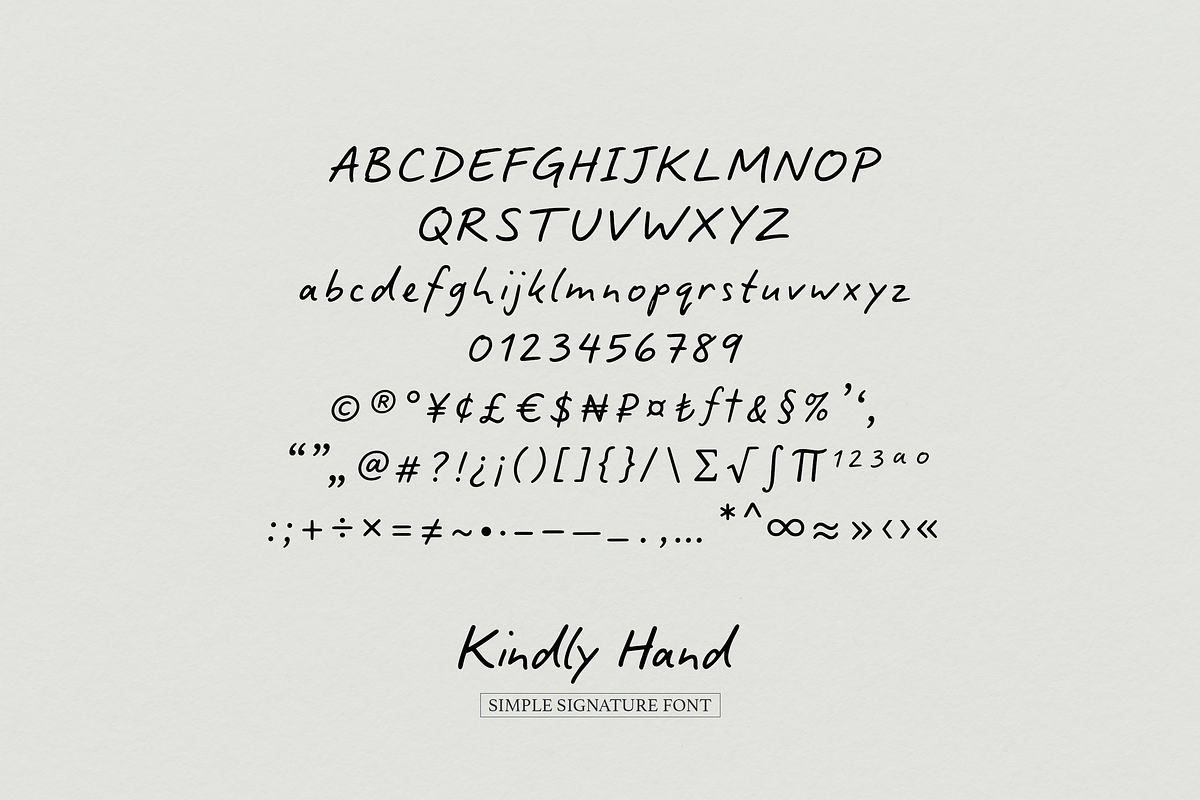 ABCDEFGHIJKLMNOP
QRSTUVWXYZ
abcdefghijklmnopqrstuvwxyz
0123456789
©®°¥¢£€$₦₽¤₺ƒ†&§%’‘‚
“”„@#?!¿¡()[]{}/\∑√∫∏¹²³ªº
:;+÷×=≠~•·-–—_.,…*^∞≈»‹›«
Kindly Hand
SIMPLE SIGNATURE FONT